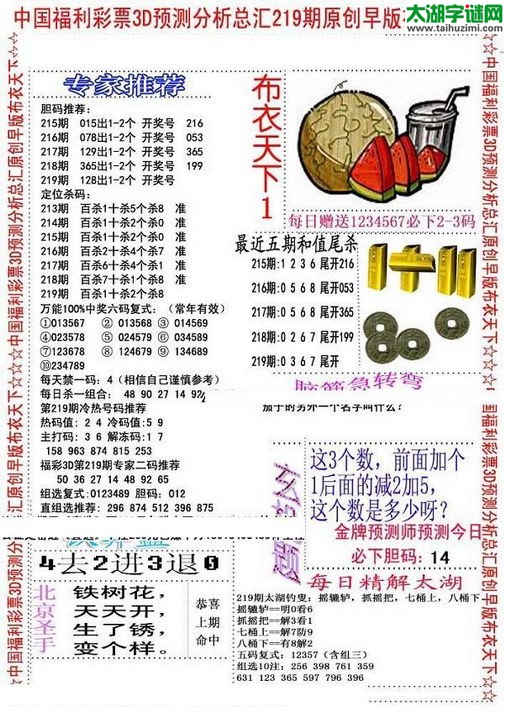 太湖字谜网
www.taihuzimi.com
中国福利彩票3D预测分析总汇219期原创早版
中国福利彩票3D预测分析总汇原创早版布衣天下
中国福利彩票3D预测分析总汇原创早版布衣天下
专家推荐
胆码推荐：
215期 015出1-2个 开奖号 216
216期 078出1-2个 开奖号 053
217期 129出1-2个 开奖号 365
218期 365出1-2个 开奖号 199
219期 128出1-2个 开奖号
定位杀码：
213期 百杀1十杀5个杀8 准
214期 百杀1十杀2个杀0 准
215期 百杀1十杀2个杀0 准
216期 百杀2十杀4个杀7 准
217期 百杀4十杀7个杀1 准
218期 百杀7十杀6个杀1 准
219期 百杀1十杀2个杀8
万能100%中奖六码复式：（常年有效）
①013567 ②013568 ③014569
④023578 ⑤024579 ⑥034679
⑦123678 ⑧124679 ⑨134689
⑩234789
每天禁一码：4（相信自己谨慎参考）
每日杀一组合： 48 90 27 14 92
第219期冷热号码推荐
热码值：2 4 冷码值：5 9
主打码：3 6 解冻码：1 7
158 963 874 815 253
福彩3D第219期专家二码推荐
50 36 27 14 48 92 65
组选复式：0123489 胆码：012
直组选推荐：296 874 512 396 875
布衣天下1
每日赠送1234567必下2-3码
最近五期和值尾杀
215期：1 2 3 6 尾开216
216期：0 5 6 8 尾开053
217期：0 5 6 8 尾开365
218期：0 2 6 7 尾开199
219期：0 3 6 7 尾开
脑筋急转弯
茄子的另外一个名字叫什么？
这3个数，前面加个
1后面的减2加5，
这个数是多少呀？
金牌预测师预测今日
必下胆码：14
4去2进3退0
北京圣手
铁树花，
天天开，
生了锈，
变个样。
恭喜
上期
命中
每日精解太湖
219期太湖钓叟：摇辘轳，抓摇把，七桶上，八桶下
摇辘轳==明0看6
抓摇把==解3看1
七桶上==解7防9
八桶下==有8解2
五码复式：12357（含组三）
组选10注：256 398 761 359
631 123 365 597 796 396